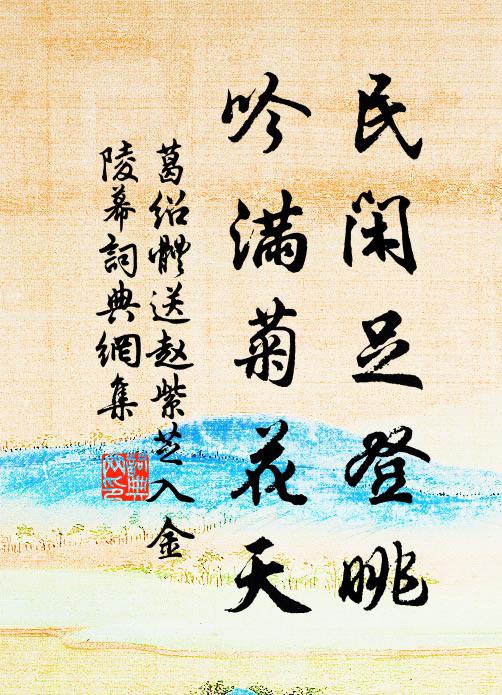 民闲足登眺
吟满菊花天
葛绍體送赵紫芝入金
陵幕詞典網集